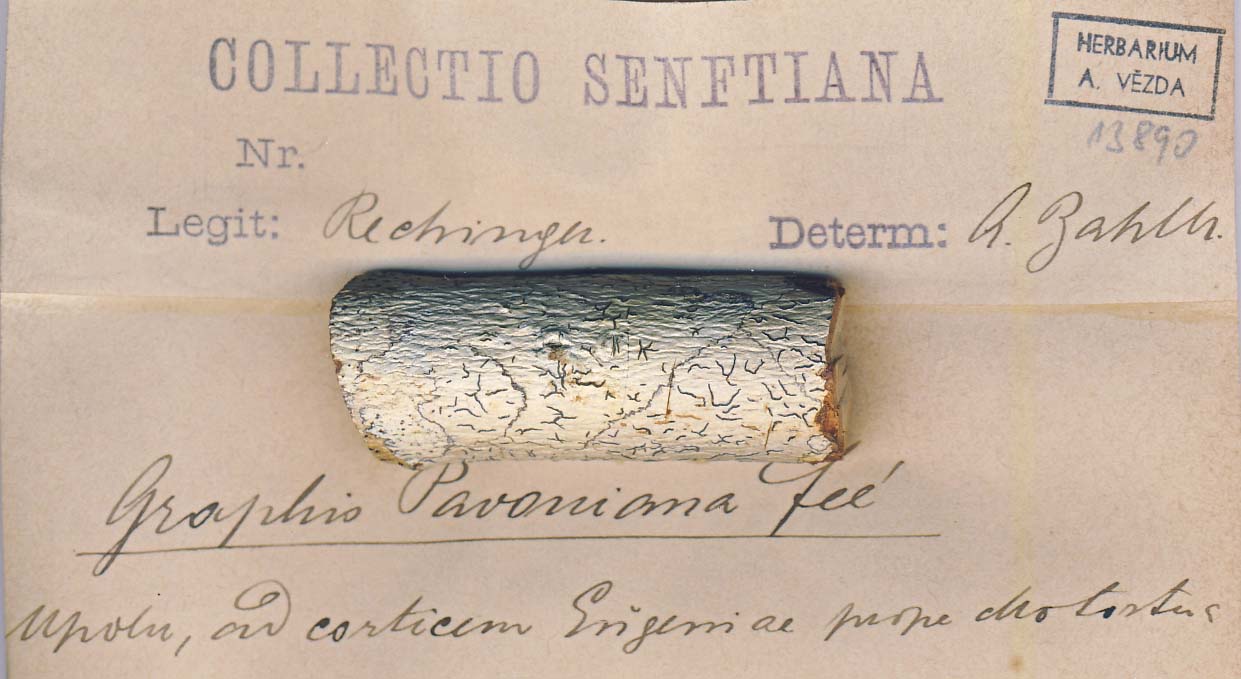 COLLECTIO SENFTIANA
HERBARIUM
A. VĚZDA
13890
Nr.
Legit: Rechinger.
Determ: A. Zahlbr.
Graphis Pavoniana Feé
Upolu, ad corticem Eugeniae prope